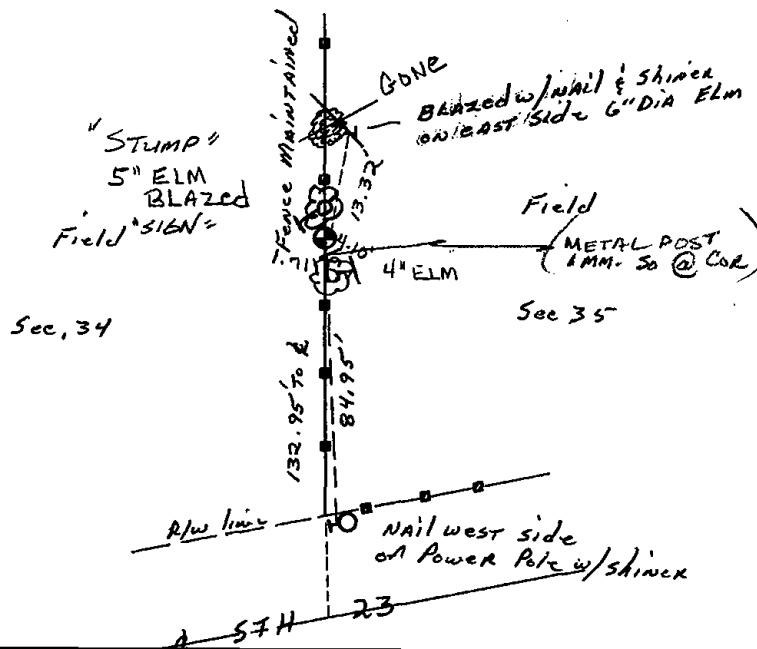 Fence Maintained
GONE
BLAZED w/NAIL & Shiner
ON EAST Side 6" DIA ELM
"STUMP"
5" ELM
BLAZED
Field "SIGN"
13.32'
Field
METAL POST
IMM. SO @ COR
4.10'
4" ELM
Sec. 34
Sec 35
132.95' To ℄
84.95'
R/W line
NAIL west side
on Power Pole w/shiner
STH 23